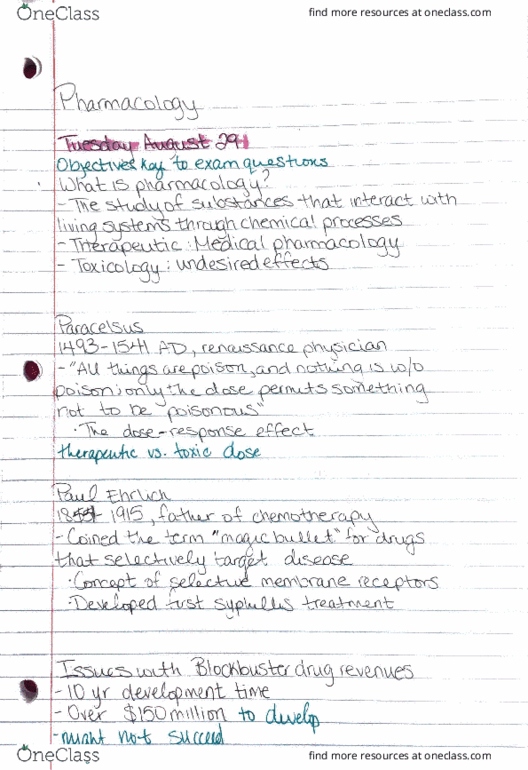 OneClass
find more resources at oneclass.com
Pharmacology
Tuesday August 29
Objectives key to exam questions
What is pharmacology?
- The study of substances that interact with
living systems through chemical processes
- Therapeutic: Medical pharmacology
- Toxicology: undesired effects
Paracelsus
1493-1541 AD, renaissance physician
- "All things are poison, and nothing is w/o
poison; only the dose permits something
not to be poisonous"
· The dose-response effect
therapeutic vs. toxic dose
Paul Ehrlich
1915, father of chemotherapy
- Coined the term "magic bullet" for drugs
that selectively target disease
· Concept of selective membrane receptors
· Developed first syphillis treatment
Issues with Blockbuster drug revenues
- 10 yr development time
- Over $150 million to develop
- might not succeed
OneClass
find more resources at oneclass.com